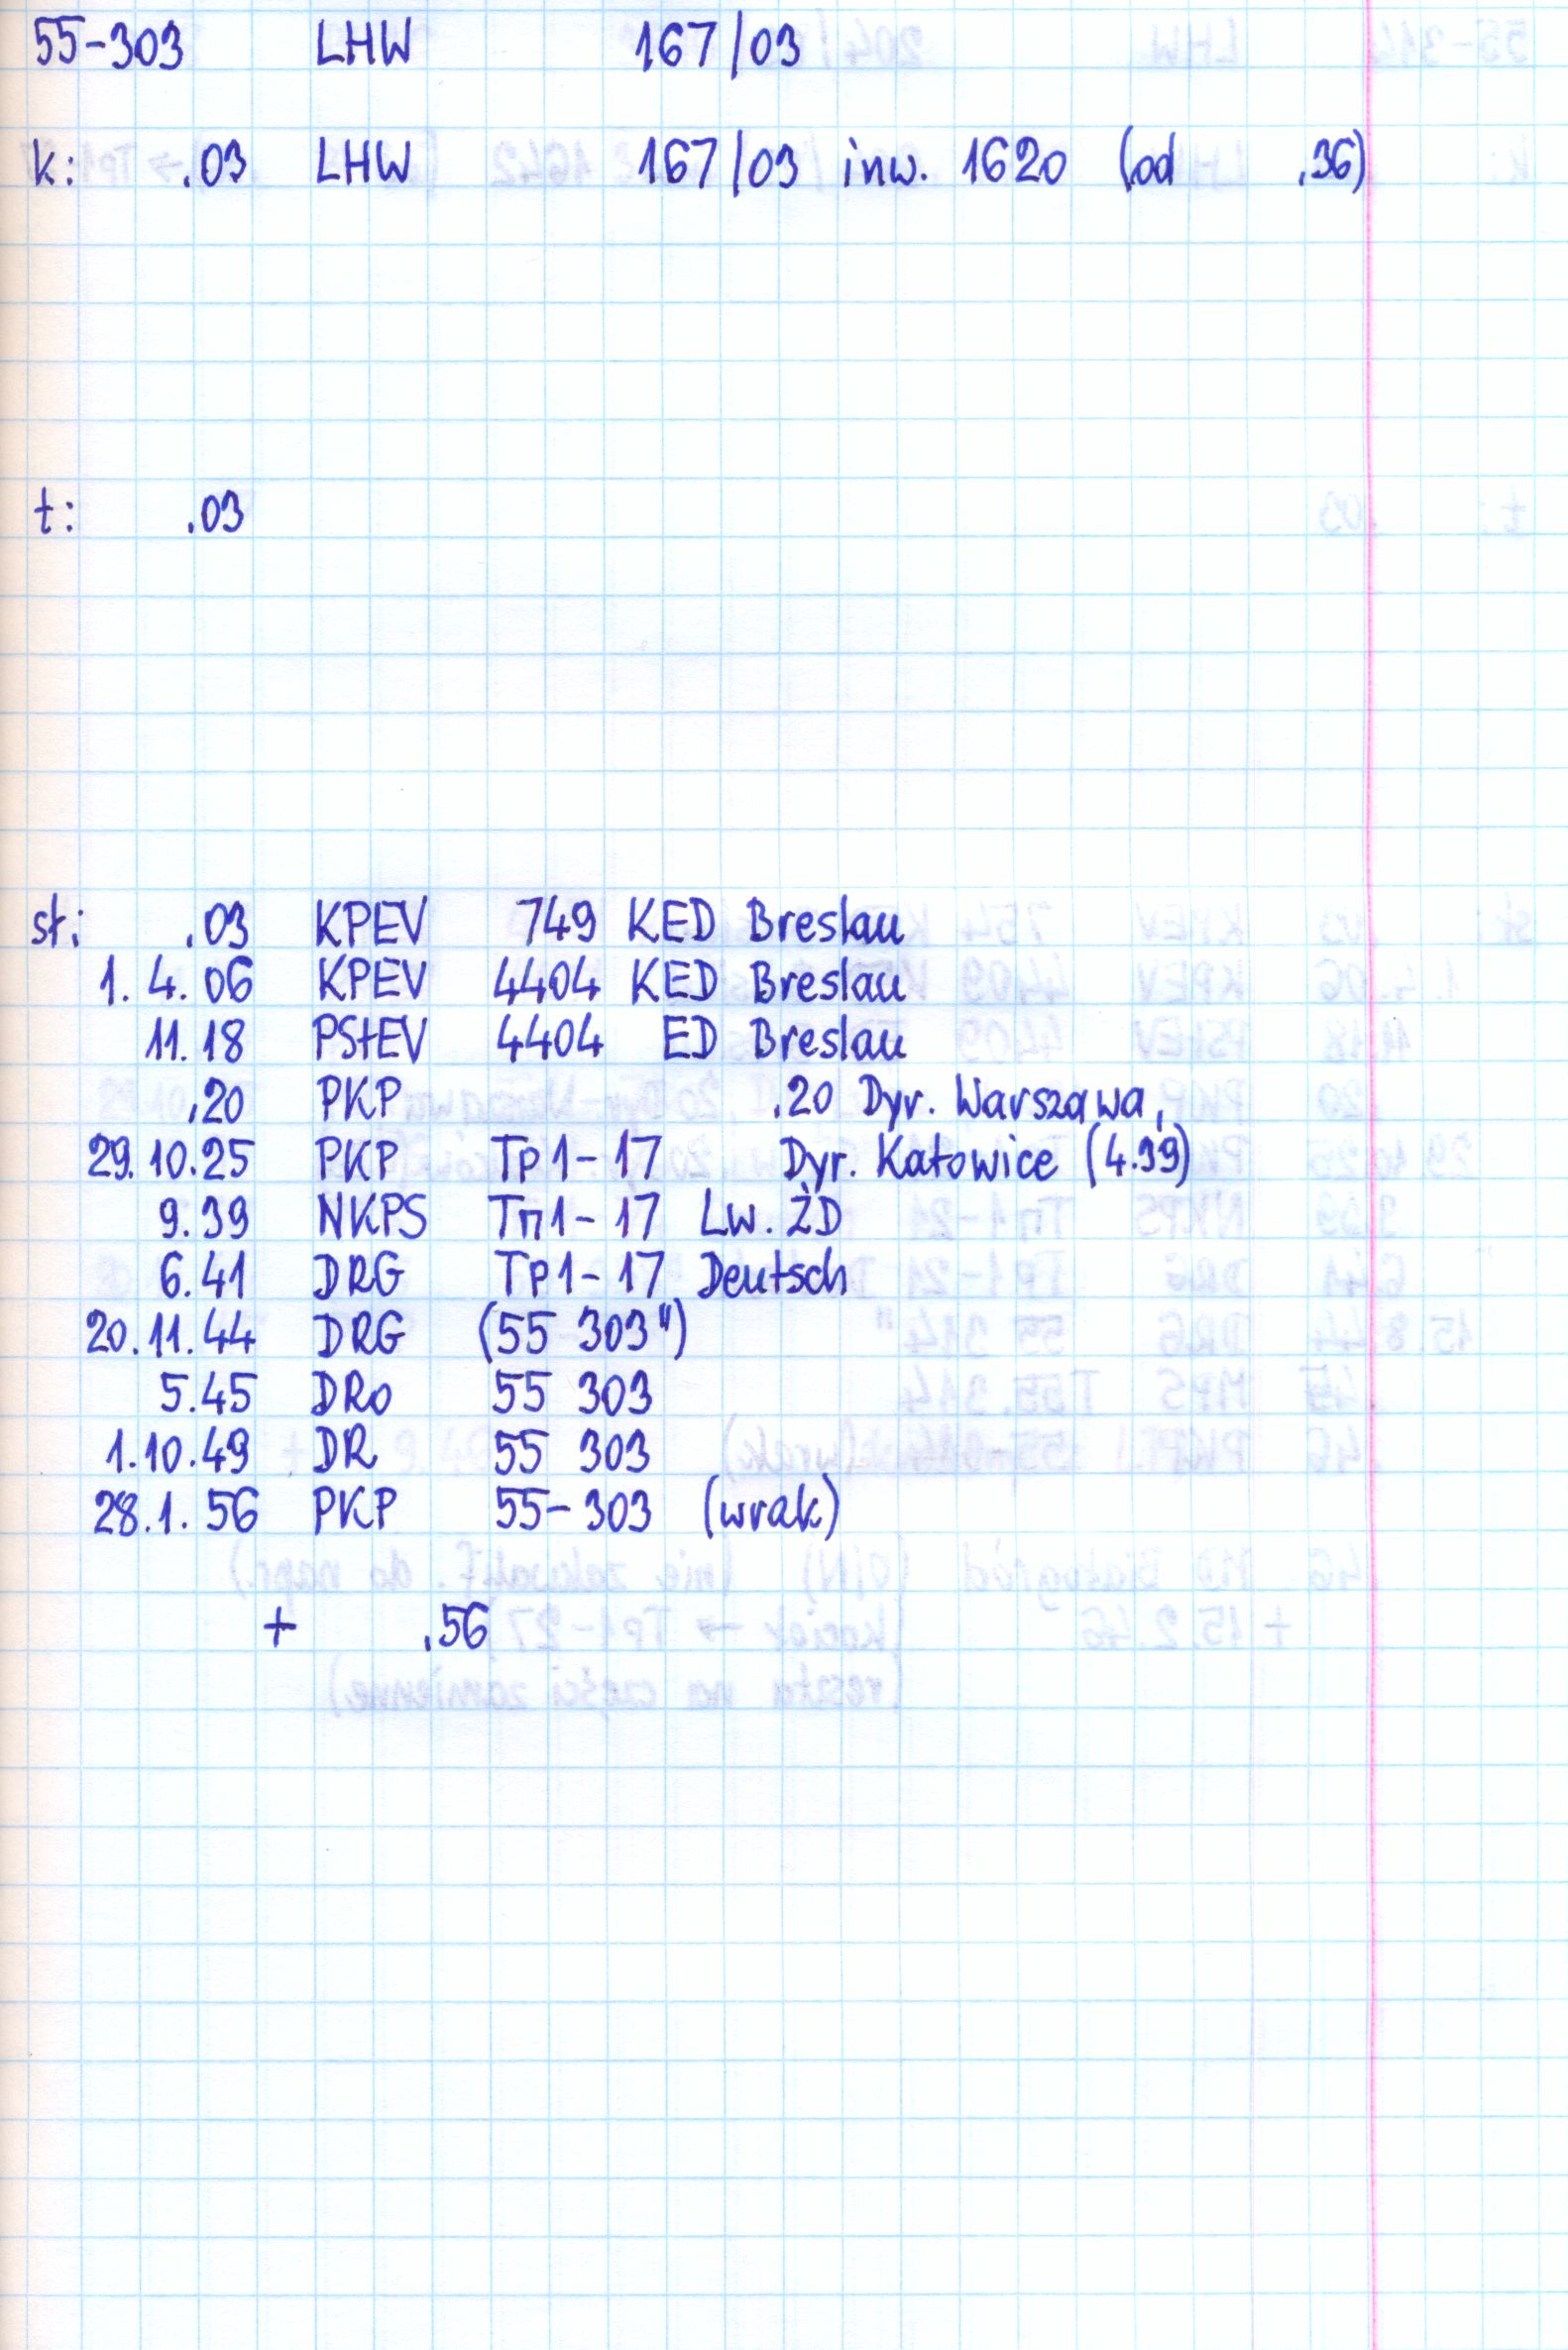 55-303 LHW 167/03
k: .03 LHW 167/03 inw. 1620 (od .36)
t: .03
st: .03 KPEV 749 KED Breslau
1.4.06 KPEV 4404 KED Breslau
11.18 PStEV 4404 ED Breslau
.20 PKP .20 Dyr. Warszawa,
29.10.25 PKP Tp1-17 Dyr. Katowice (4.39)
9.39 NKPS Тп1-17 Lw. ŻD
6.41 DRG Tp1-17 Deutsch
20.11.44 DRG (55 303")
5.45 DRo 55 303
1.10.49 DR 55 303
28.1.56 PKP 55-303 (wrak)
+ .56